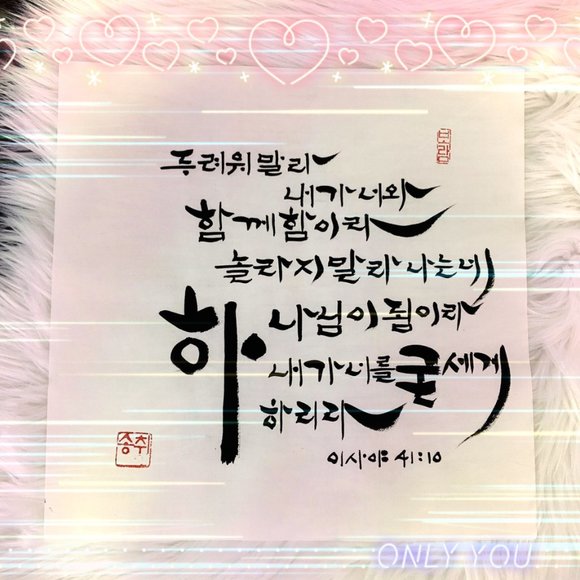 두려워말라
내가너와
함께함이라
놀라지말라 나는네
하나님이됨이라
내가너를굳세게
하리라
이사야 41:10
송추
ONLY YOU